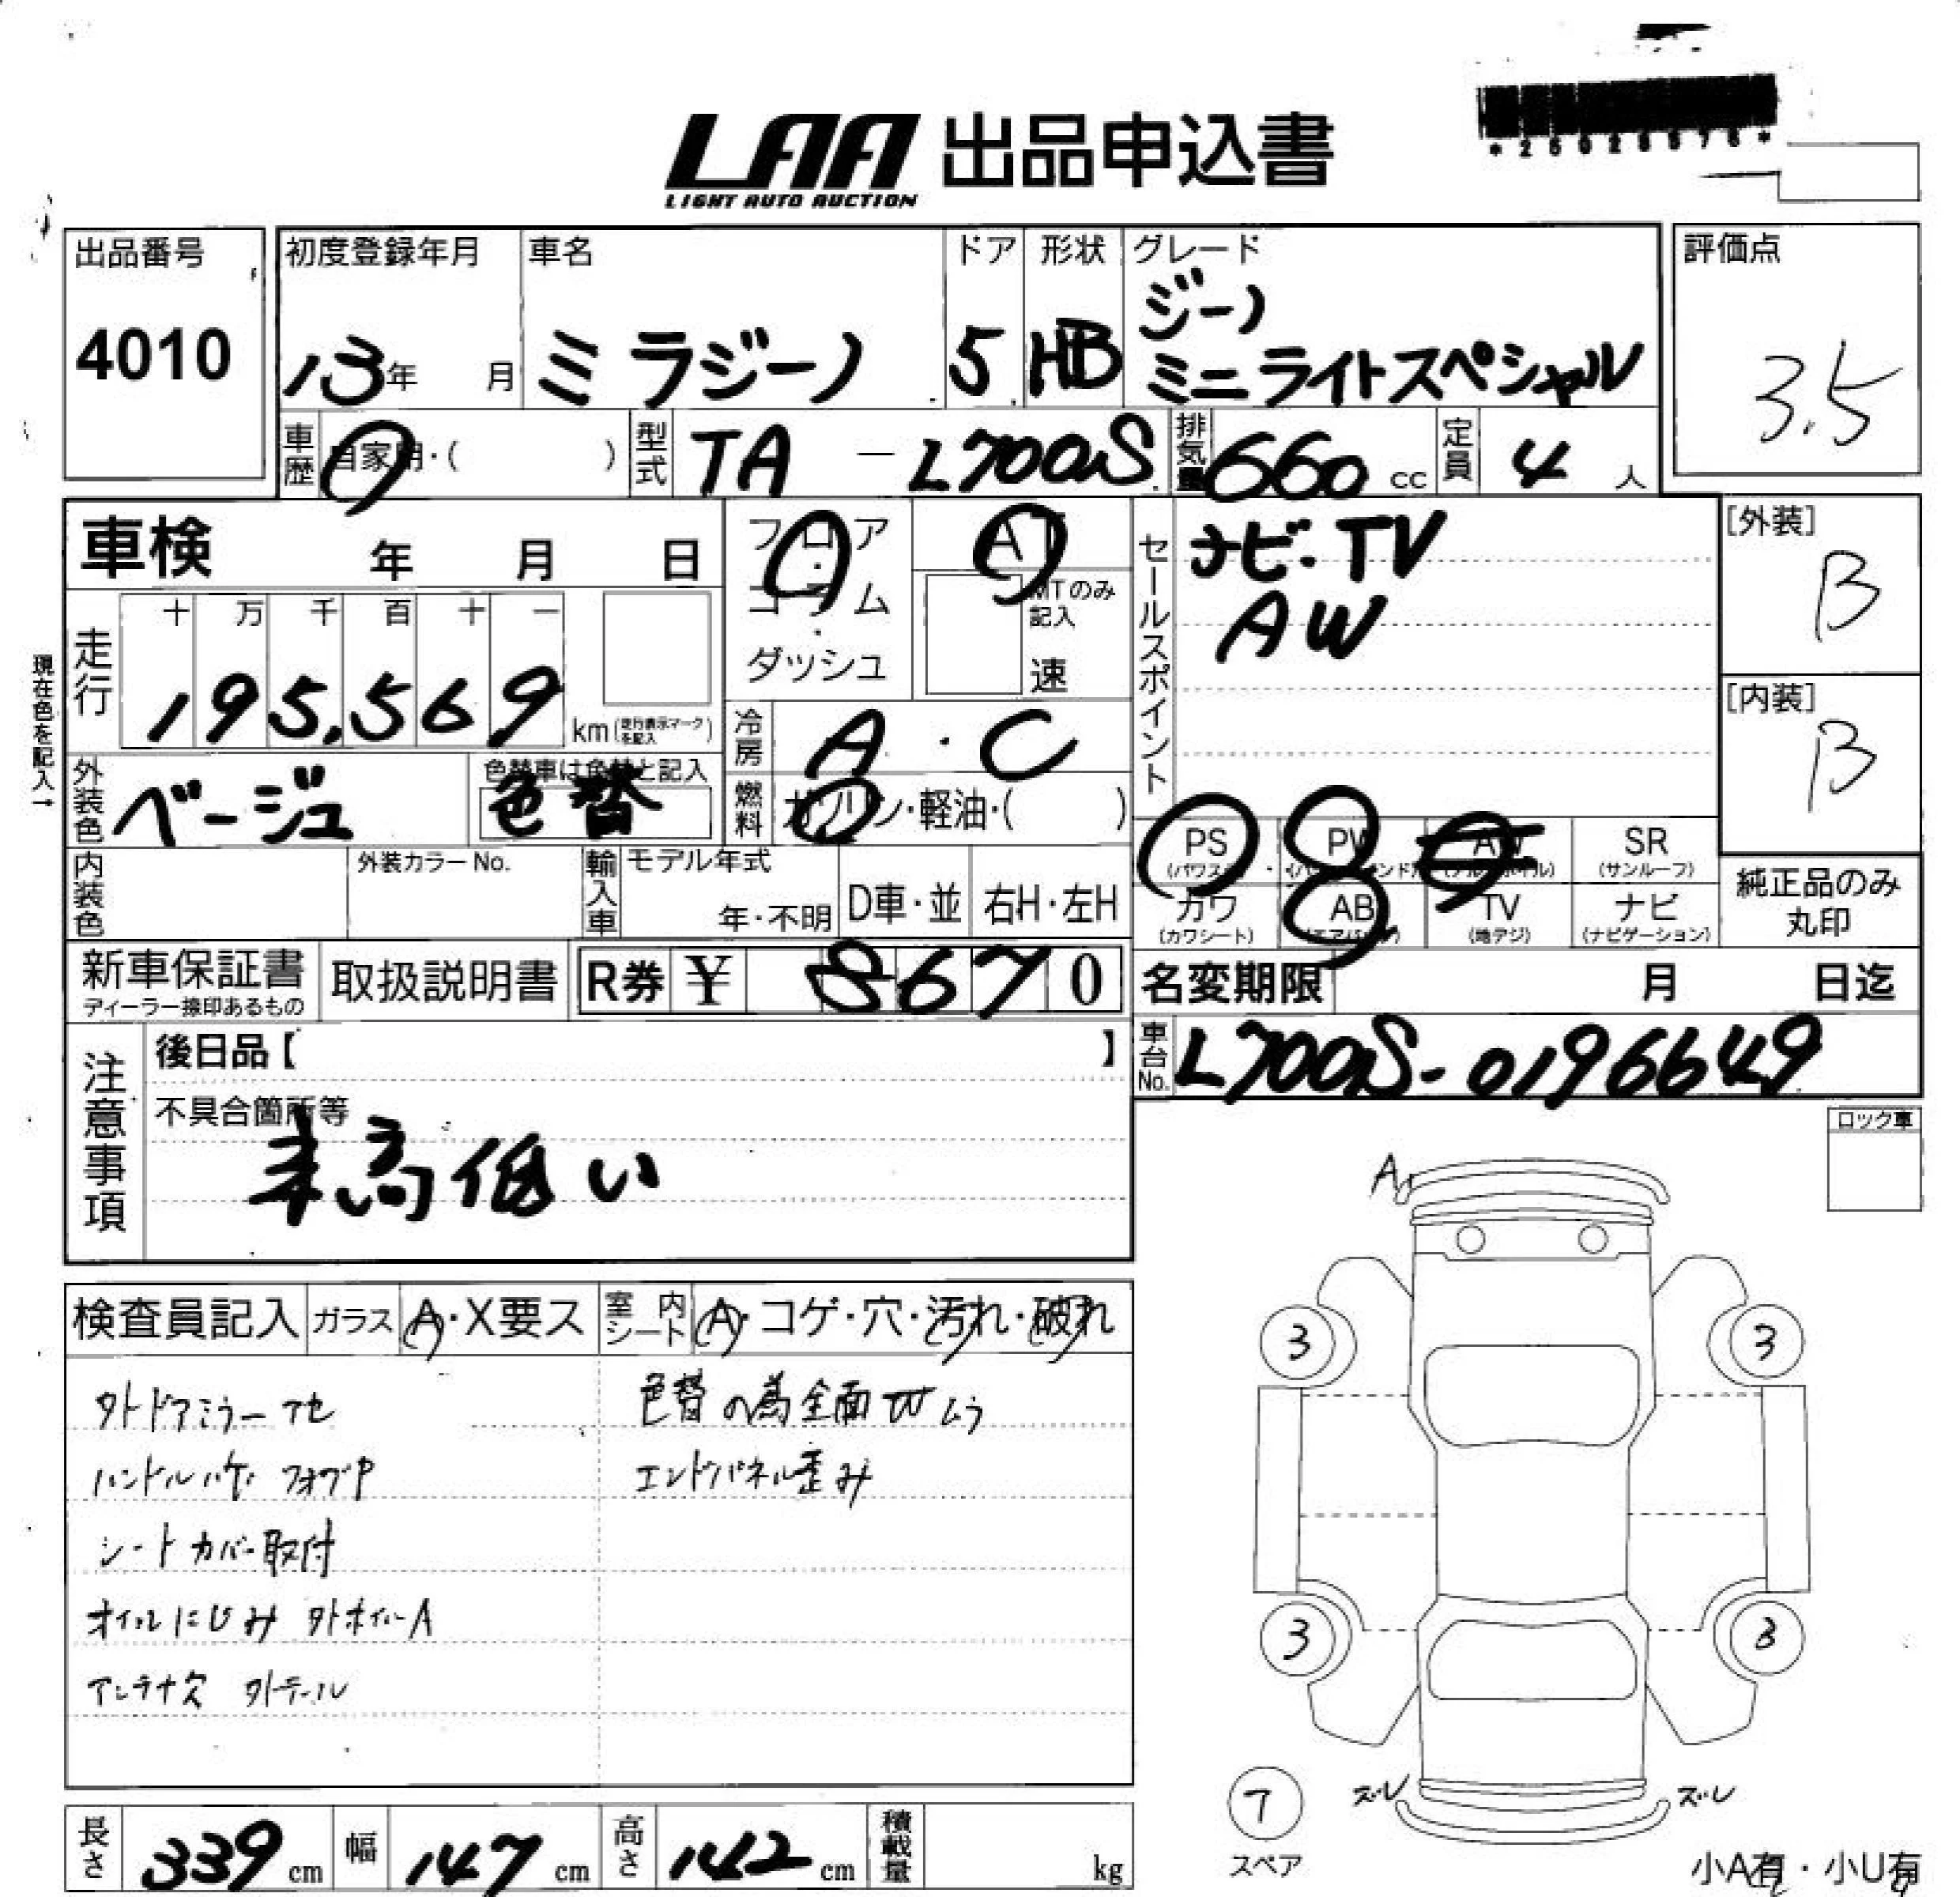 LAA 出品申込書
LIGHT AUTO AUCTION
出品番号
4010
初度登録年月
13年 月
車名
ミラジーノ
ドア
5
形状
HB
グレード
ジーノ
ミニライトスペシャル
評価点
3.5
車歴 自家用・( )
型式 TA - L700S
排気量 660 cc
定員 4 人
車検 年 月 日
フロア・コラム・ダッシュ
AT
MTのみ記入
速
セールスポイント
ナビ・TV
AW
[外装]
B
[内装]
B
現在色を記入→
走行
十 万 千 百 十 一
195,569 km (走行表示マークを記入)
冷房 A・C
外装色 ベージュ
色替車は色替と記入
色替
燃料 ガソリン・軽油・( )
PS (パワステ)
PW
AW
SR (サンルーフ)
カワ (カワシート)
AB (エアバッグ)
TV (地デジ)
ナビ (ナビゲーション)
純正品のみ丸印
内装色
外装カラーNo.
輸入車
モデル年式
年・不明
D車・並
右H・左H
新車保証書
ディーラー捺印あるもの
取扱説明書
R券 ¥ 8670
名変期限 月 日迄
注意事項
後日品【 】
車台No. L700S-0196649
不具合箇所等
車高低い
ロック車
検査員記入
ガラス A・X要ス
室内シート A・コゲ・穴・汚れ・破れ
外ドアミラーアセ
ハンドルハゲ
シートカバー取付
オイルにじみ 外ホイールA
アンテナ欠 外テール
色替の為全面
ムラ
エンドパネル歪み
A
3
3
3
3
7
スペア
ズレ
ズレ
長さ 339 cm
幅 147 cm
高さ 142 cm
積載量 kg
小A有・小U有